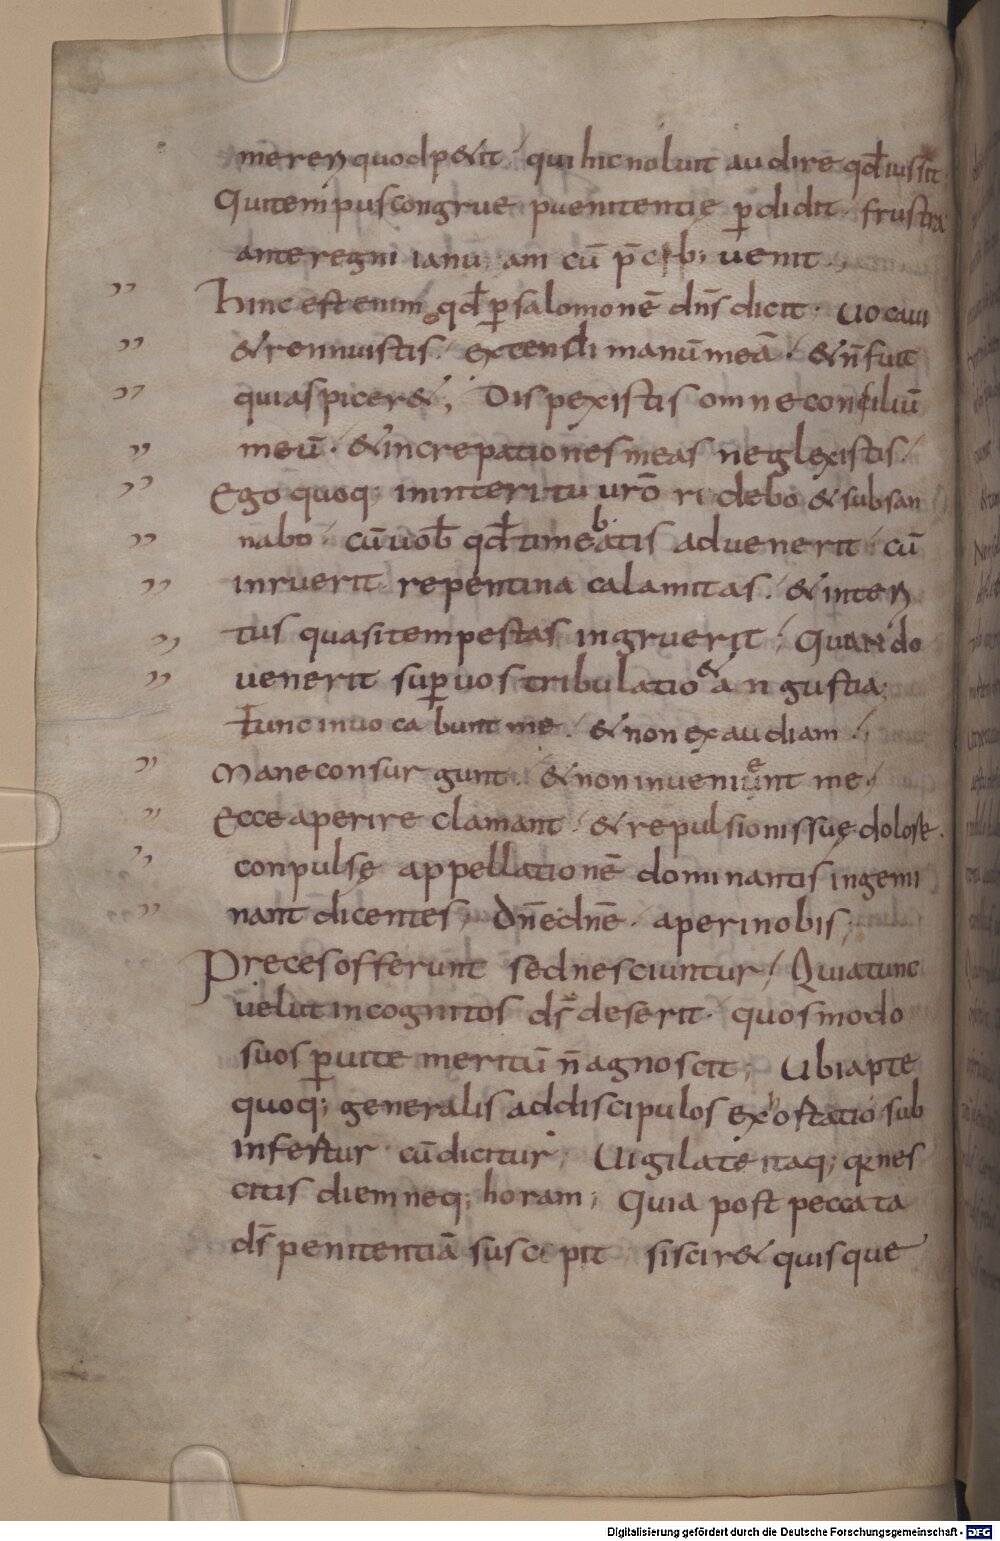 mereri quod p&it / qui hic noluit audire qđ iussit.
Qui tempus congrue puenitentię ꝑdidit / frustra
ante regni ianuam cū p̄cib; uenit.,
Hinc est enim qđ ꝑ salomonē dn̄s dicit. Uocaui
& rennuistis / extendi manū meā. & n̄ fuit
qui aspicer&; Dispexistis omne consiliū
meū. & increpationes meas neglexistis /
Ego quoq; in interitu uro͞ ridebo & subsan
nabo / cū uob̄ qđ timebatis aduenerit / cū
inruerit repentina calamitas. & interi
tus quasi tempestas ingruerit / Quando
uenerit suꝑ uos tribulatio & angustia;
tunc inuocabunt me. & non exaudiam /,
Mane consurgunt. & non inueniuent me. /
Ecce aperire clamant / & repulsionis suę dolore.
conpulsę appellationē dominantis ingemi
nant dicentes, Dn̄e dn̄e / aperi nobis;
Preces offerunt sed nesciuntur / Quia tunc
uelut incognitos dS̄ deserit. quos modo
suos ꝑ uite meritū n̄ agnoscit; Ubi apte
quoq; generalis ad discipulos exhostatio sub
infertur / cū dicitur, Uigilate itaq; q̄ nes
citis diem neq; horam; Quia post peccata
dS̄ penitentiā suscepit / si scir& quisque
Digitalisierung gefördert durch die Deutsche Forschungsgemeinschaft - DFG